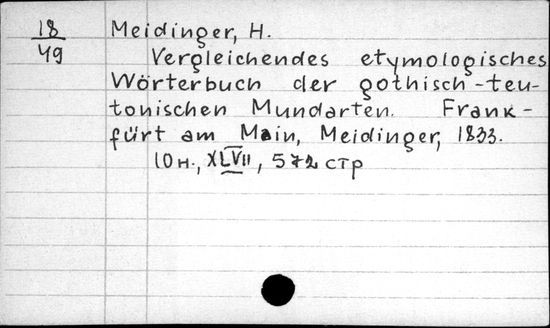 18
49
Meidinger, H.
Vergleichendes etymologisches
Wörterbuch der gothisch-teu-
tonischen Mundarten. Frank-
fürt am Main, Meidinger, 1833.
10н., XLVII, 572 стр